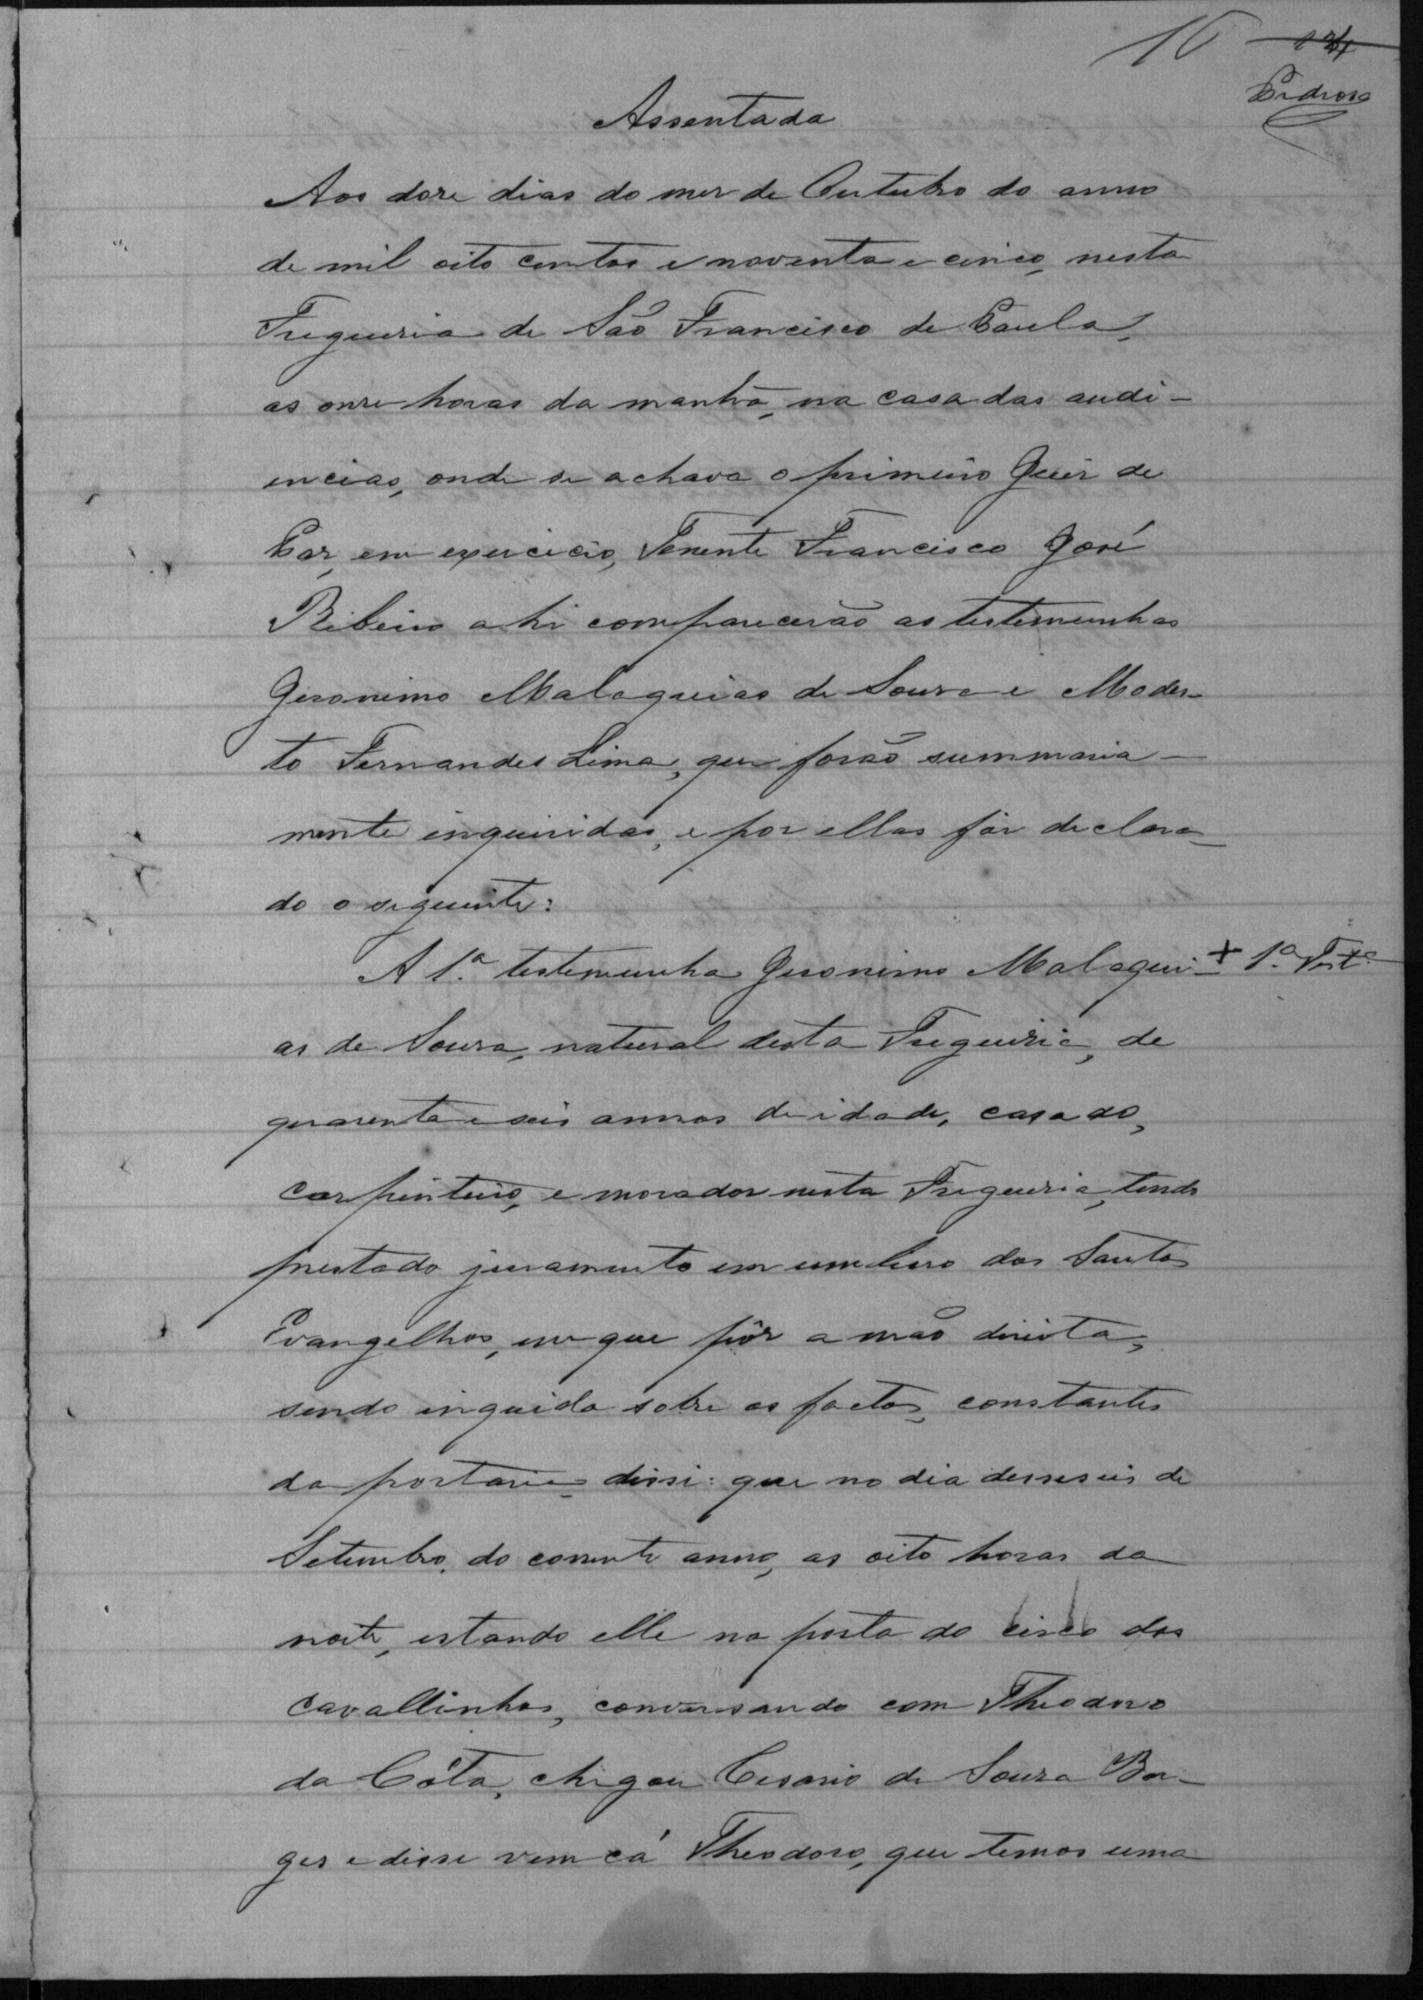 16 14
Pedrosa
Assentada
Aos doze dias do mez de Outubro do anno
de mil oito centos e noventa e cinco, nesta
Freguezia de São Francisco de Paula,
as onze horas da manhã, na casa das audi-
encias, onde se achava o primeiro Juiz de
Paz, em exercicio, Tenente Francisco José
Ribeiro ahi comparecerão as testemunhas
Jeronimo Malaquias de Souza e Modes-
to Fernandes Lima, que forão summaria-
mente inquiridas, e por ellas foi declara-
do o seguinte:
A 1.ª testemunha Jeronimo Malaqui- + 1.ª Test.ª
as de Souza, natural desta Freguezia, de
quarenta e seis annos de idade, casado,
carpinteiro, e morador nesta Freguezia, tendo
prestado juramento em um livro dos Santos
Evangelhos, em que pôz a mão direita,
sendo inquida sobre os factos, constantes
da portaria disse: que no dia desseseis de
Setembro, do corrente anno, as oito horas da
noite, estando elle na porta do circo dos
cavallinhos, conversando com Theodoro
da Cóta, chegou Cesario de Souza Bor-
ges e disse vem cá Theodoro, que temos uma